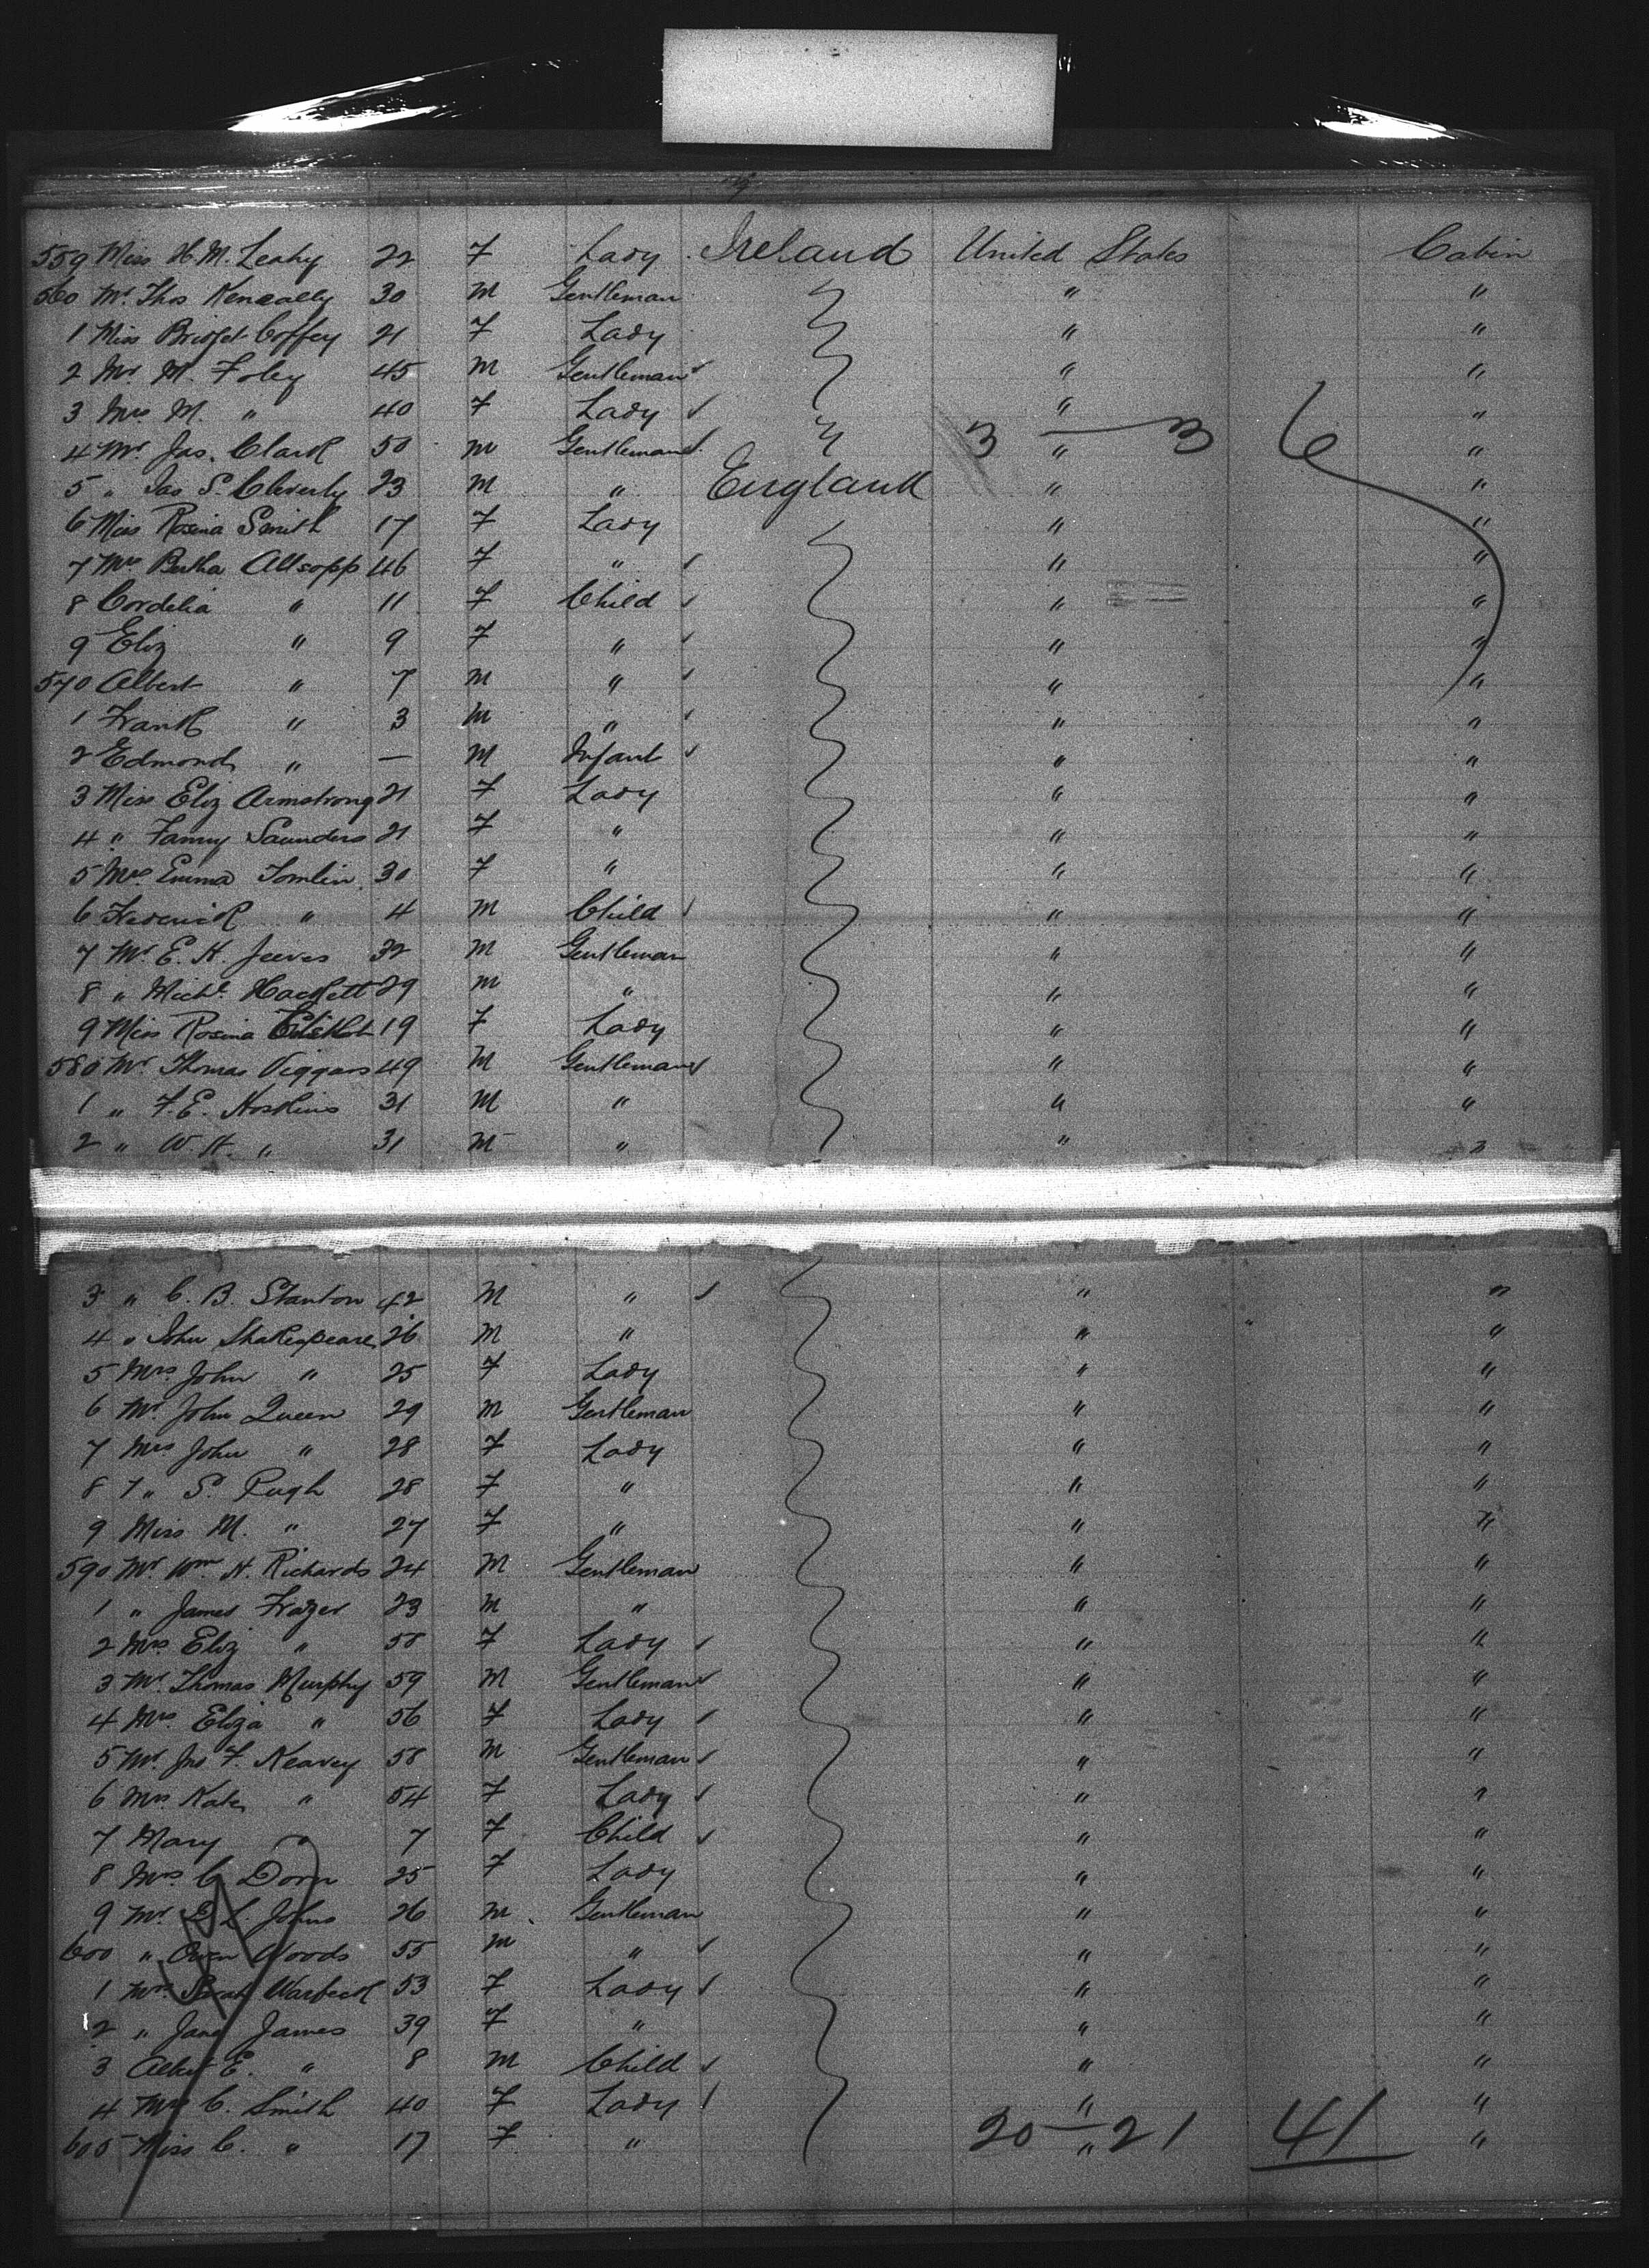 559 Miss H. M. Leahy 22 F Lady Ireland United States Cabin
560 Mr. Thos Keneally 30 M Gentleman " "
1 Miss Bridget Coffey 21 F Lady " "
2 Mr M. Foley 45 M Gentleman " "
3 Mrs M. " 40 F Lady " "
4 Mr. Jas. Clark 50 M Gentleman " 3 — 3 6 " "
5 " Jas S. Cleverly 23 M " England " "
6 Miss Rosina Smith 17 F Lady " "
7 Mrs Bertha Allsopp 46 F " " "
8 Cordelia " 11 F Child " "
9 Eliz " 9 F " " "
570 Albert " 7 M " " "
1 Frank " 3 M " " "
2 Edmond " — M Infant " "
3 Miss Eliz Armstrong 21 F Lady " "
4 " Fanny Saunders 21 F " " "
5 Mrs. Emma Tomlin 30 F " " "
6 Frederick " 4 M Child " "
7 Mr. E. H. Jeeves 32 M Gentleman " "
8 " Michl. Hackett 29 M " " "
9 Miss Rosina 19 F Lady " "
580 Mr. Thomas Viggars 49 M Gentleman " "
1 " F. E. Hoskins 31 M " " "
2 " W. H. " 31 M " " "
3 " C. B. Stanton 42 M " " "
4 " John Shakespeare 26 M " " "
5 Mrs. John " 25 F Lady " "
6 Mr. John Queen 29 M Gentleman " "
7 Mrs John " 28 F Lady " "
8 " S. Pugh 28 F " " "
9 Miss M. " 27 F " " "
590 Mr. Wm. H. Richards 24 M Gentleman " "
1 " James Frazer 23 M " " "
2 Mrs. Eliz " 58 F Lady " "
3 Mr. Thomas Murphy 59 M Gentleman " "
4 Mrs. Eliza " 56 F Lady " "
5 Mr. Jno F. Keavey 58 M Gentleman " "
6 Mrs Kate " 54 F Lady " "
7 Mary " 7 F Child " "
8 Mrs. C Dorn 25 F Lady " "
9 Mr. L. Johns 26 M Gentleman " "
600 " Owen Woods 55 M " " "
1 Mrs. Sarah Warbeck 53 F Lady " "
2 " Jane James 39 F " " "
3 Albert E. " 8 M Child " "
4 Mrs C. Smith 40 F Lady " "
605 Miss C. " 17 F " " 20 — 21 41 "